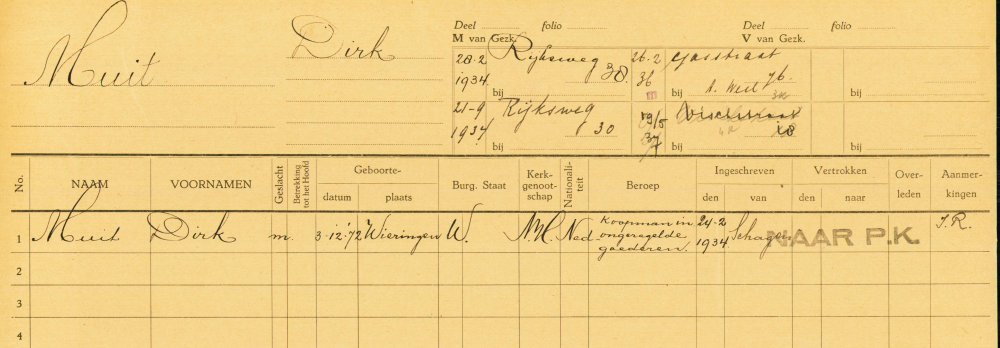 Deel folio Deel folio
M van Gezk. V van Gezk.
Muit Dirk
28-2 1934 Rijksweg 38. bij
26-2 36 Gasstraat 76. bij A. West
21-9 1934 Rijksweg 30 bij
19/5 37 Visscherstraat 18 bij
bij
bij
No. NAAM VOORNAMEN Geslacht Betrekking tot het Hoofd Geboorte- datum plaats Burg. Staat Kerk-genoot-schap Nationali-teit Beroep Ingeschreven den van Vertrokken den naar Over-leden Aanmer-kingen
1 Muit Dirk m. 3-12-'72 Wieringen W. N.H. Ned. Koopman in ongeregelde goederen. 24-2 1934 Schagen NAAR P.K. J.R.
2
3
4